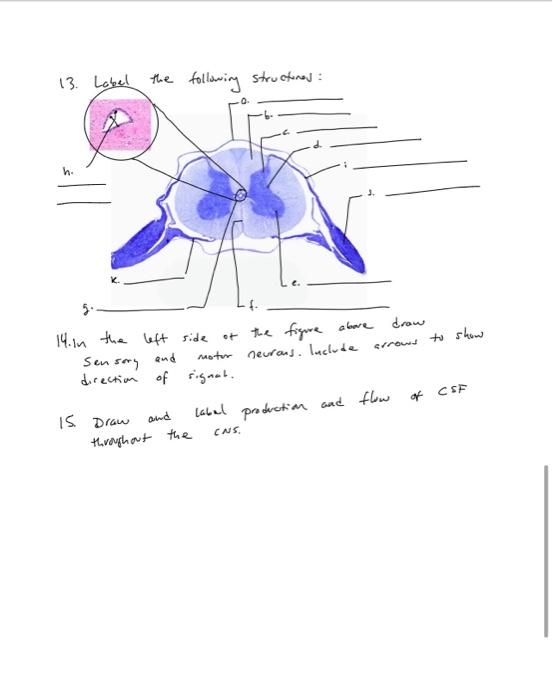 13. Label the following structures:
a.
b.
c.
d.
i.
h.
j.
k.
e.
g.
f.
14. In the left side of the figure above draw
sensory and motor neurons. Include arrows to show
direction of signal.
15. Draw and label production and flow of CSF
throughout the CNS.